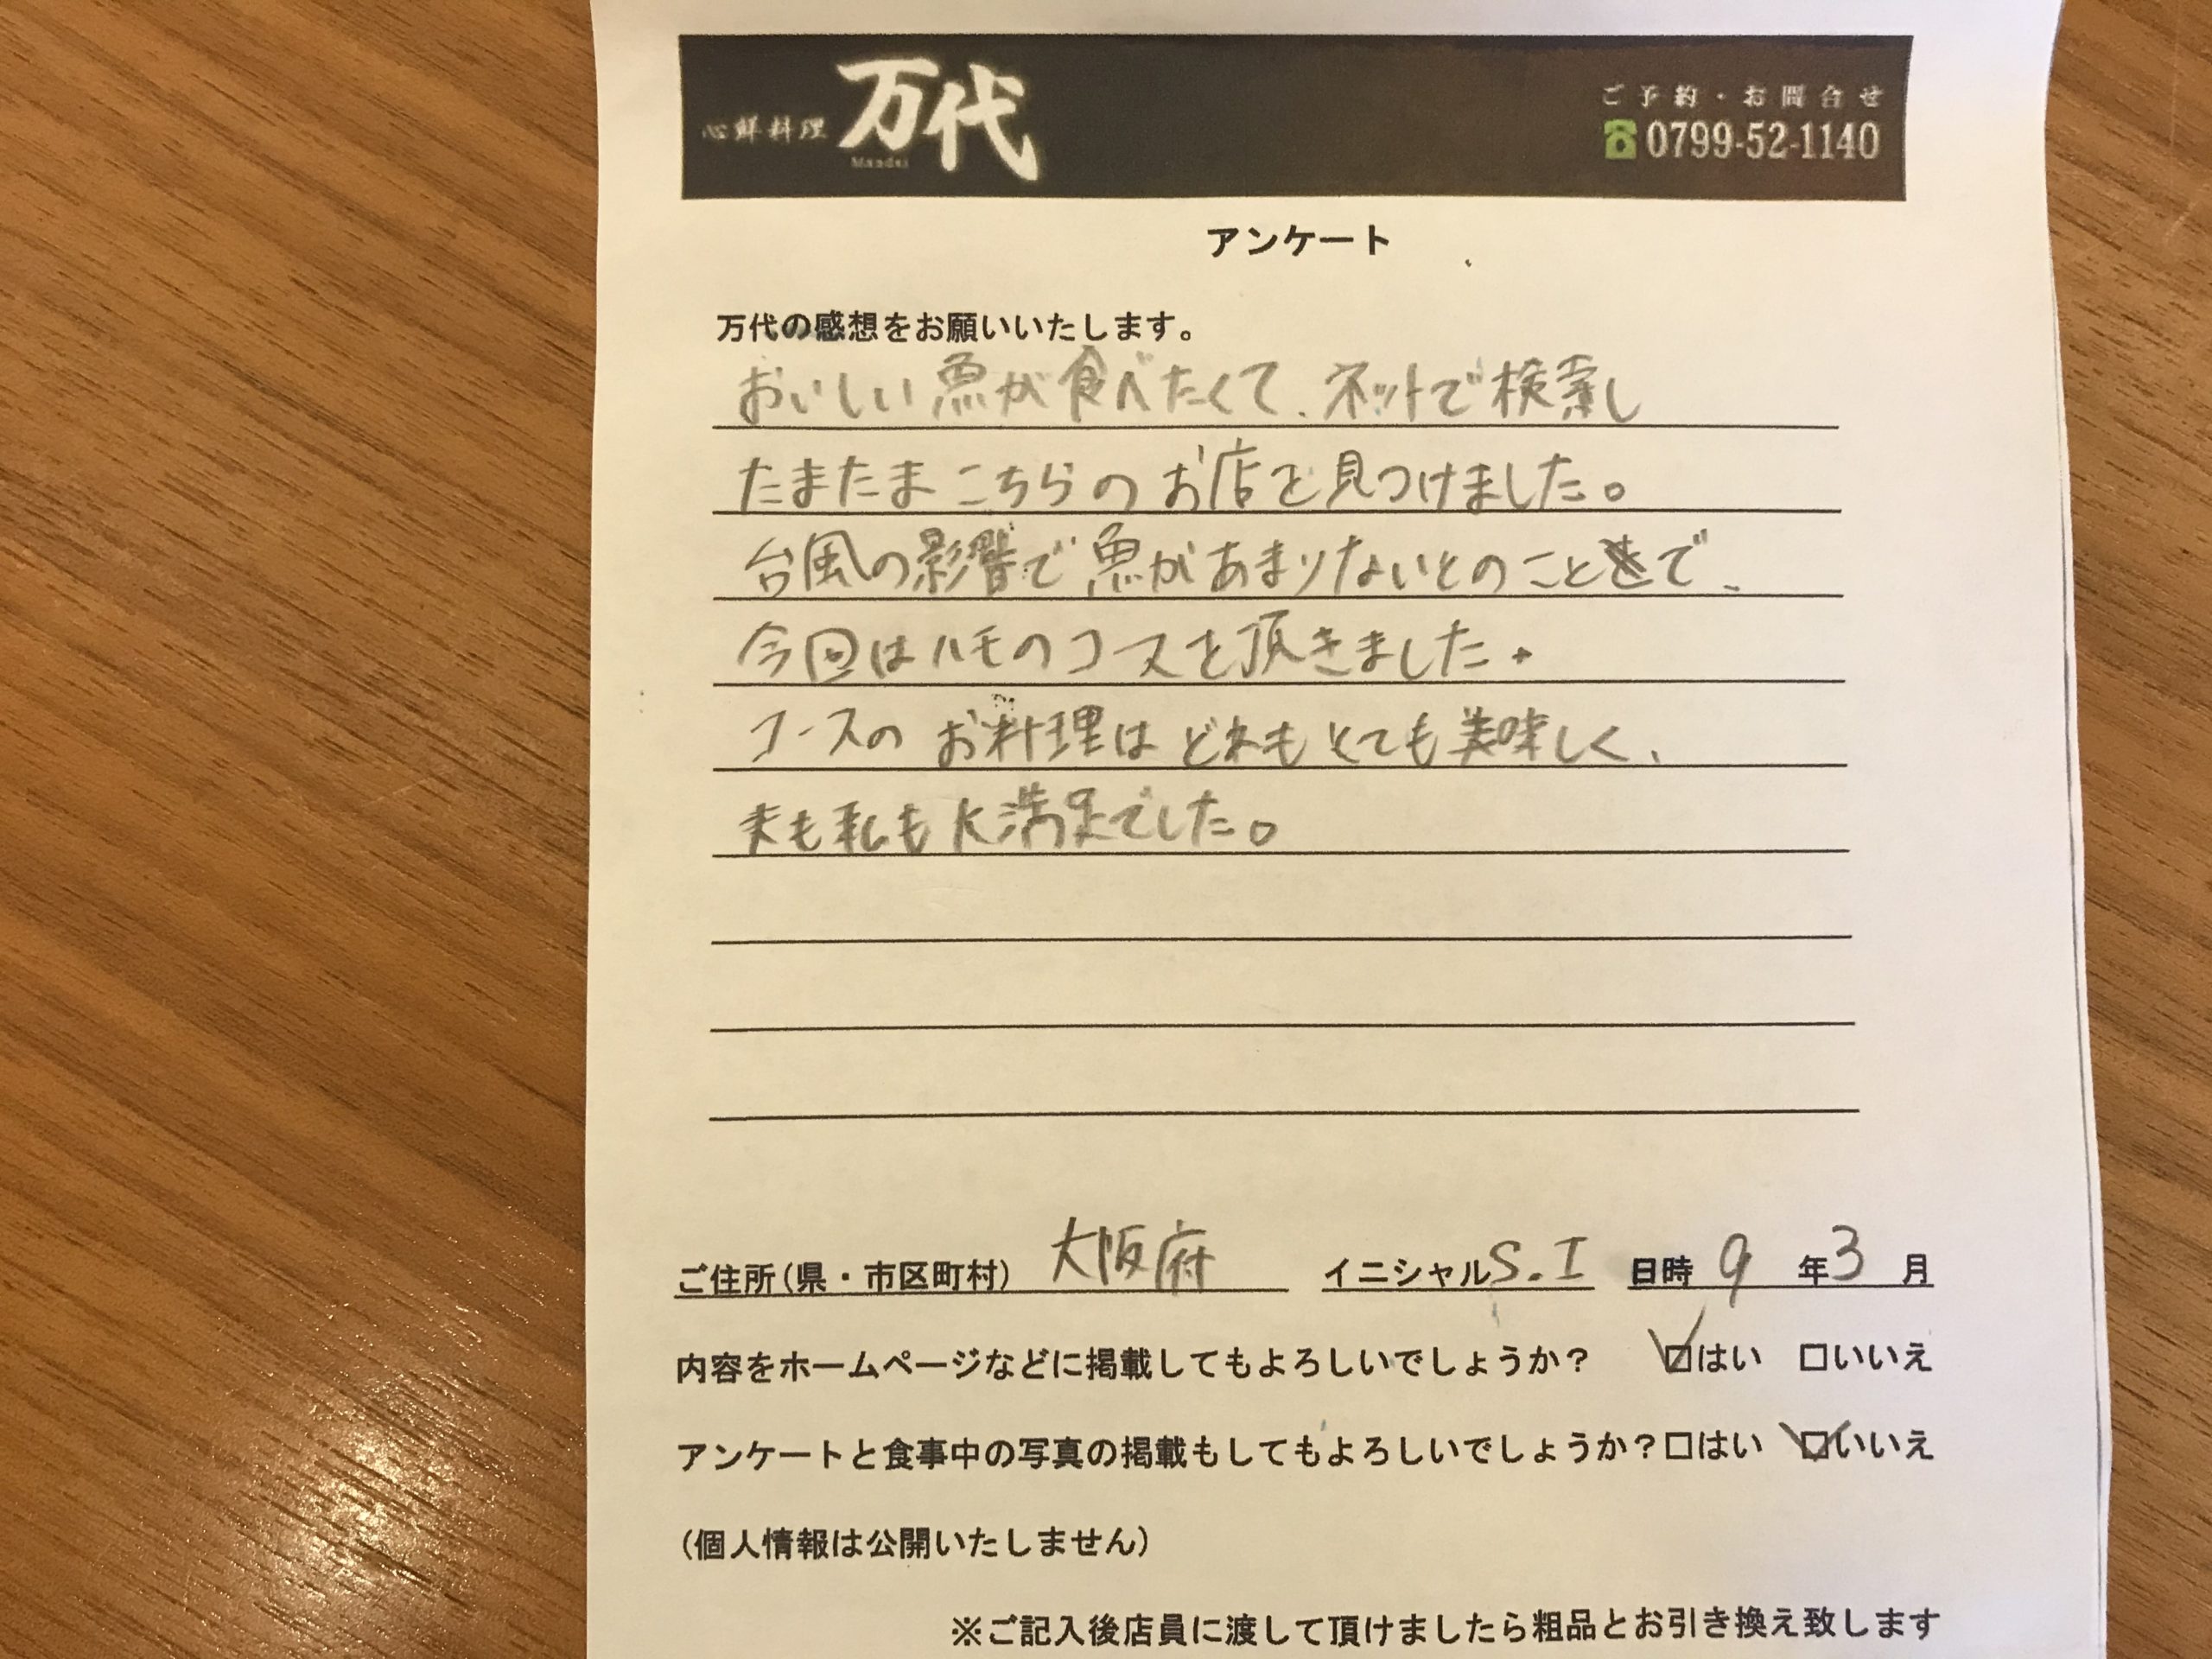 心鮮料理 万代
Mandai
ご予約・お問合せ
0799-52-1140
アンケート
万代の感想をお願いいたします。
おいしい魚が食べたくて、ネットで検索し
たまたまこちらのお店を見つけました。
台風の影響で魚があまりないとのことで、
今回はハモのコースを頂きました。
コースのお料理はどれもとても美味しく、
夫も私も大満足でした。
ご住所(県・市区町村) 大阪府 イニシャル S.I 日時 9 年 3 月
内容をホームページなどに掲載してもよろしいでしょうか? ☑はい □いいえ
アンケートと食事中の写真の掲載もしてもよろしいでしょうか?□はい ☑いいえ
(個人情報は公開いたしません)
※ご記入後店員に渡して頂けましたら粗品とお引き換え致します